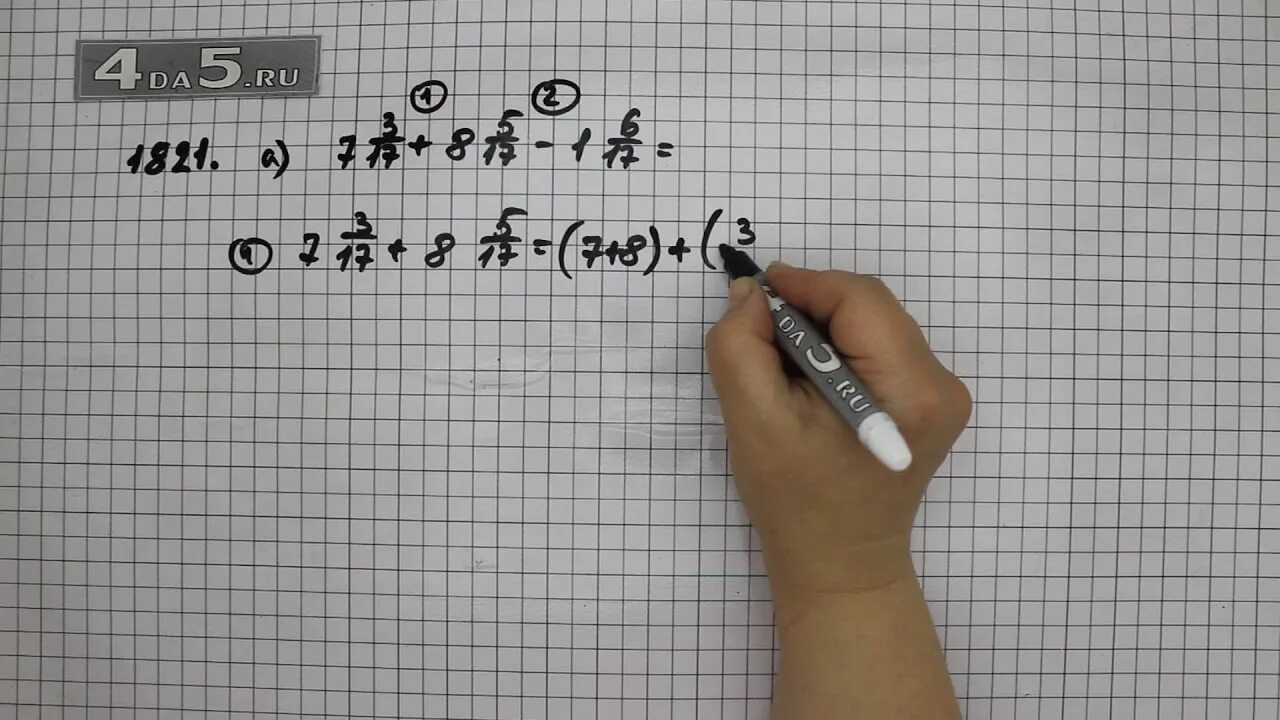 4DA5.RU
① ②
1821. а) 7 3/17 + 8 5/17 - 1 6/17 =
① 7 3/17 + 8 5/17 = (7+8) + ( 3
4DA5.RU